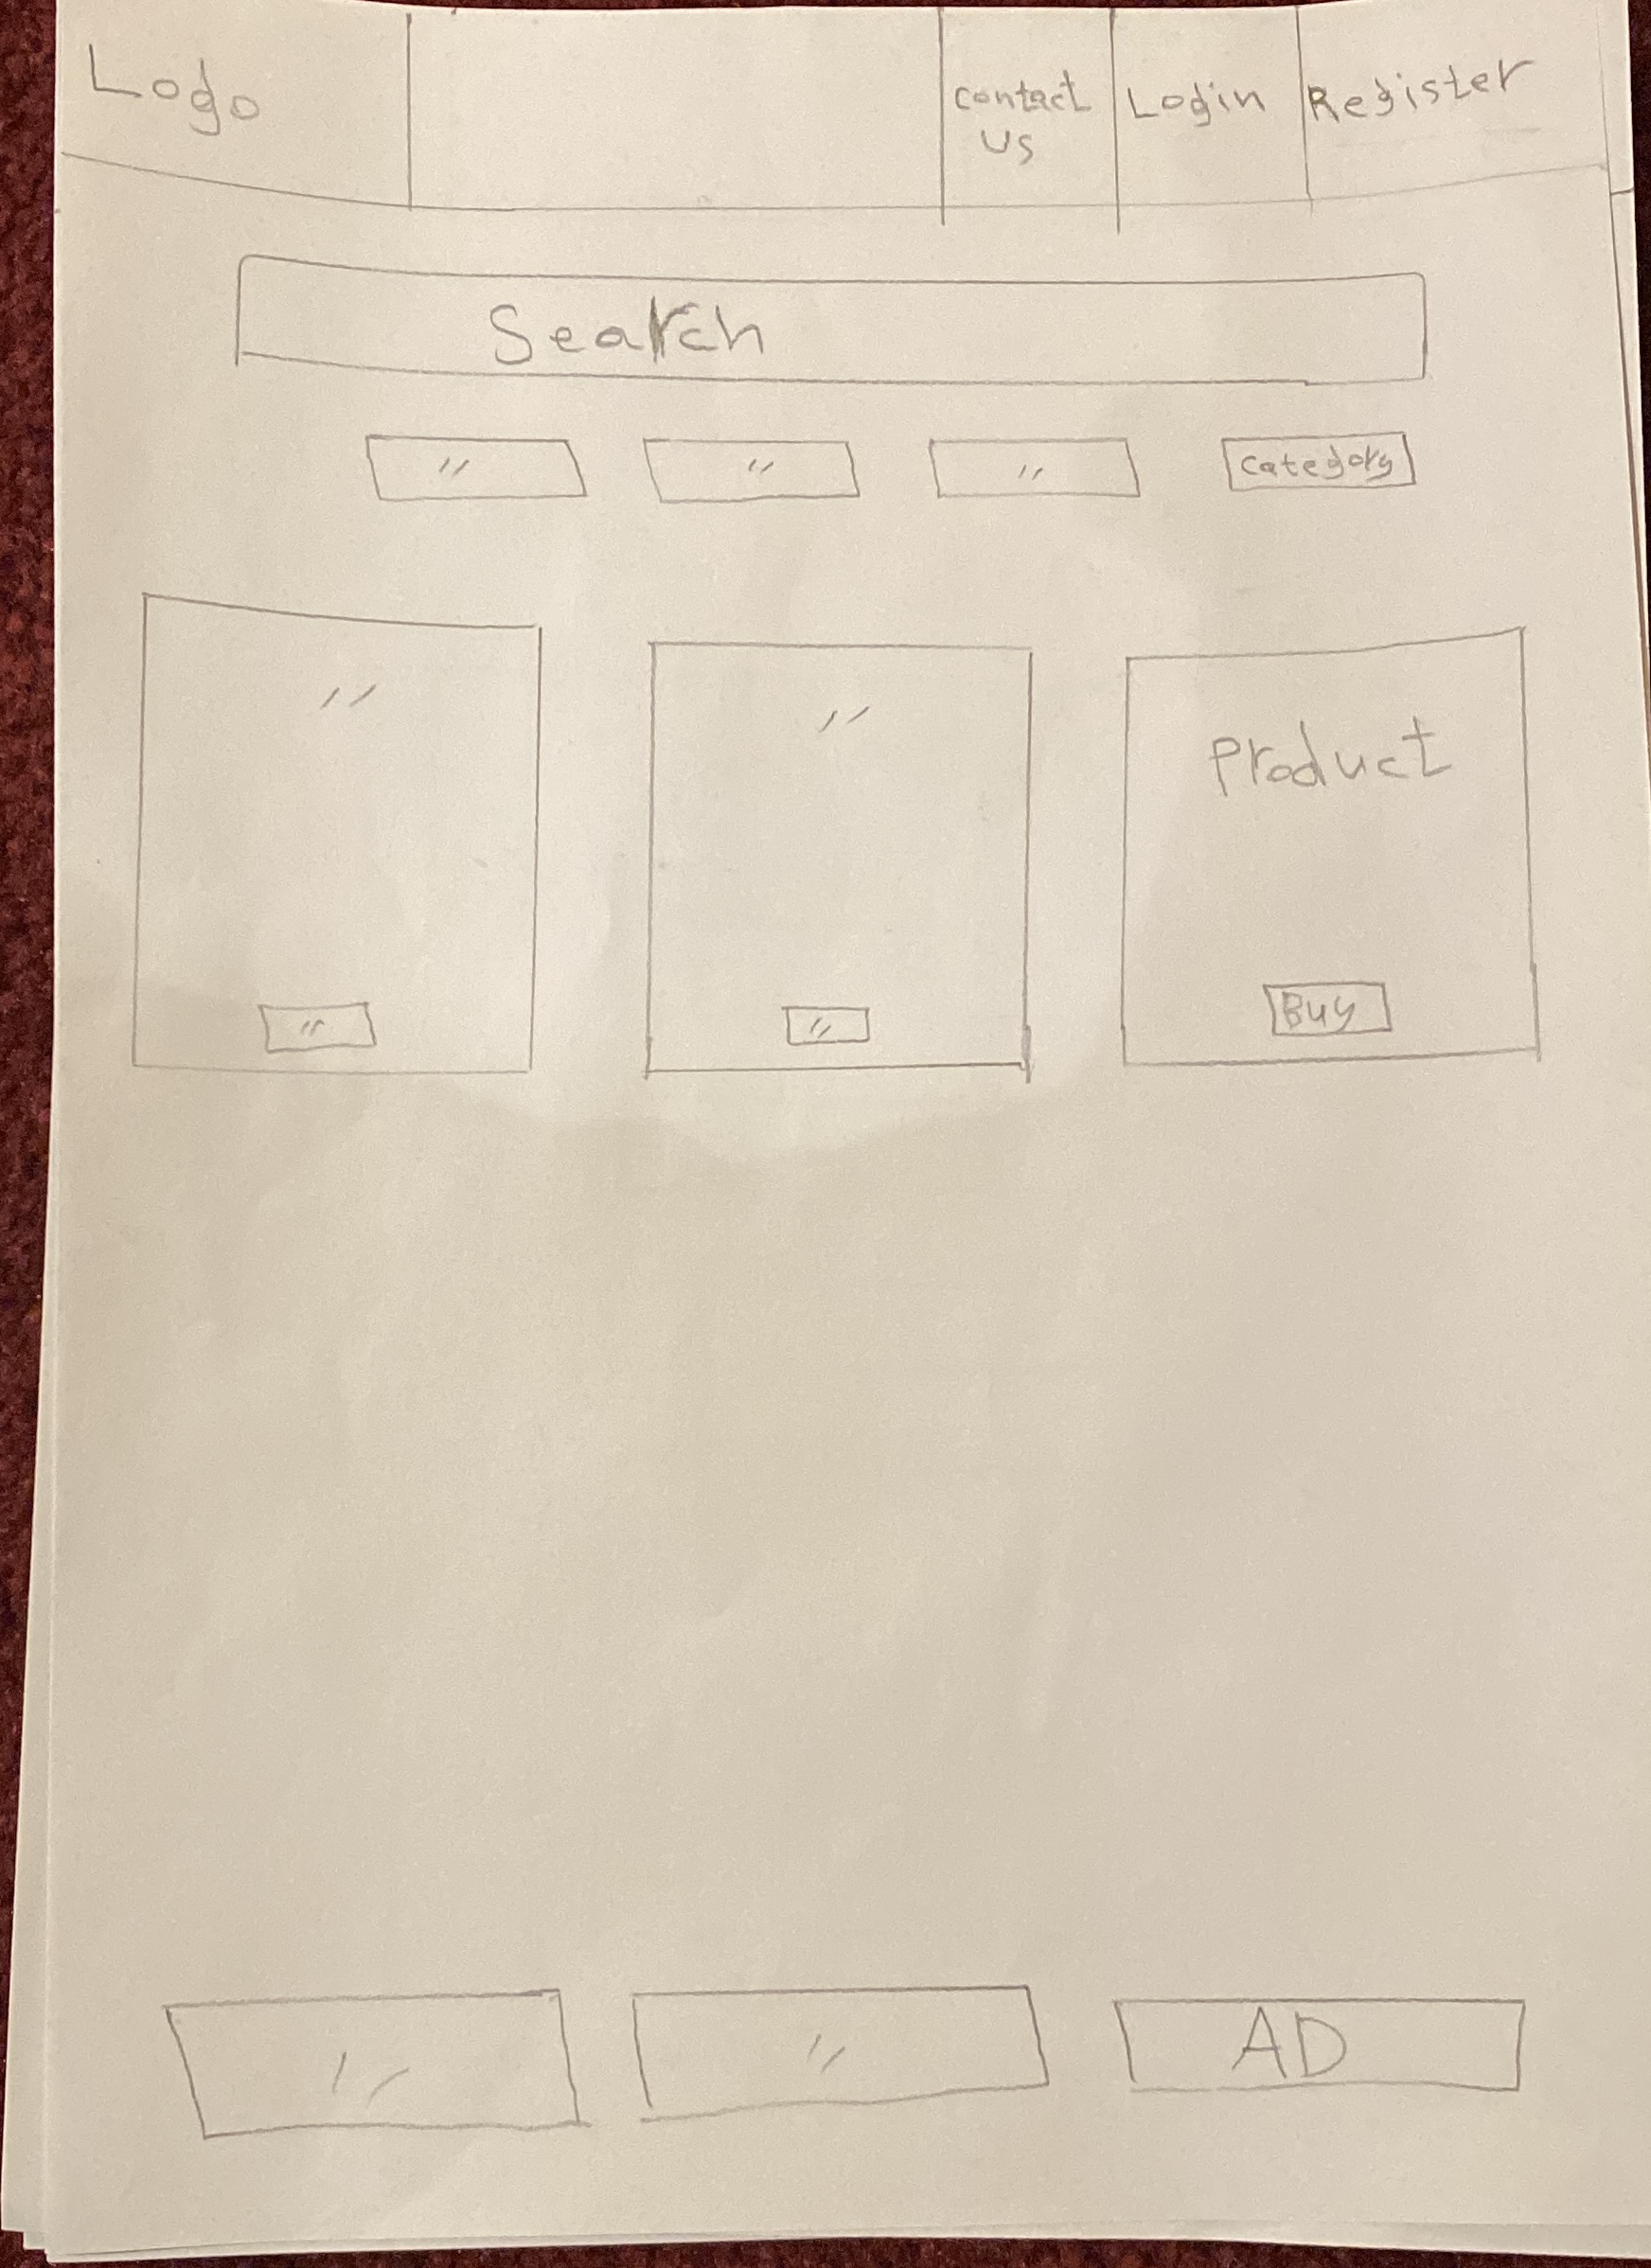 Logo
contact
us
Login
Register
Search
〃
〃
〃
category
〃
〃
Product
〃
〃
Buy
〃
〃
AD